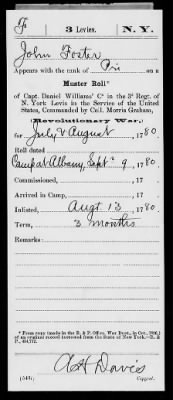 F | 3 Levies. | N.Y.
John Foster
Appears with the rank of Pri on a
Muster Roll*
of Capt. Daniel Williams' Co in the 3d Regt. of
N. York Levis in the Service of the United
States, Commanded by Coll. Morris Graham,
Revolutionary War,
for July & August, 1780.
Roll dated
Camp at Albany, Sept 9, 1780.
Commissioned, , 17
Arrived in Camp, , 17
Inlisted, Augt 13, 1780.
Term 3 months
Remarks:
*From copy (made in the R. & P. Office, War Dept., in Oct.
of an original record borrowed from the State of New York.—R. &
P.,
A H Davis
Copyist.